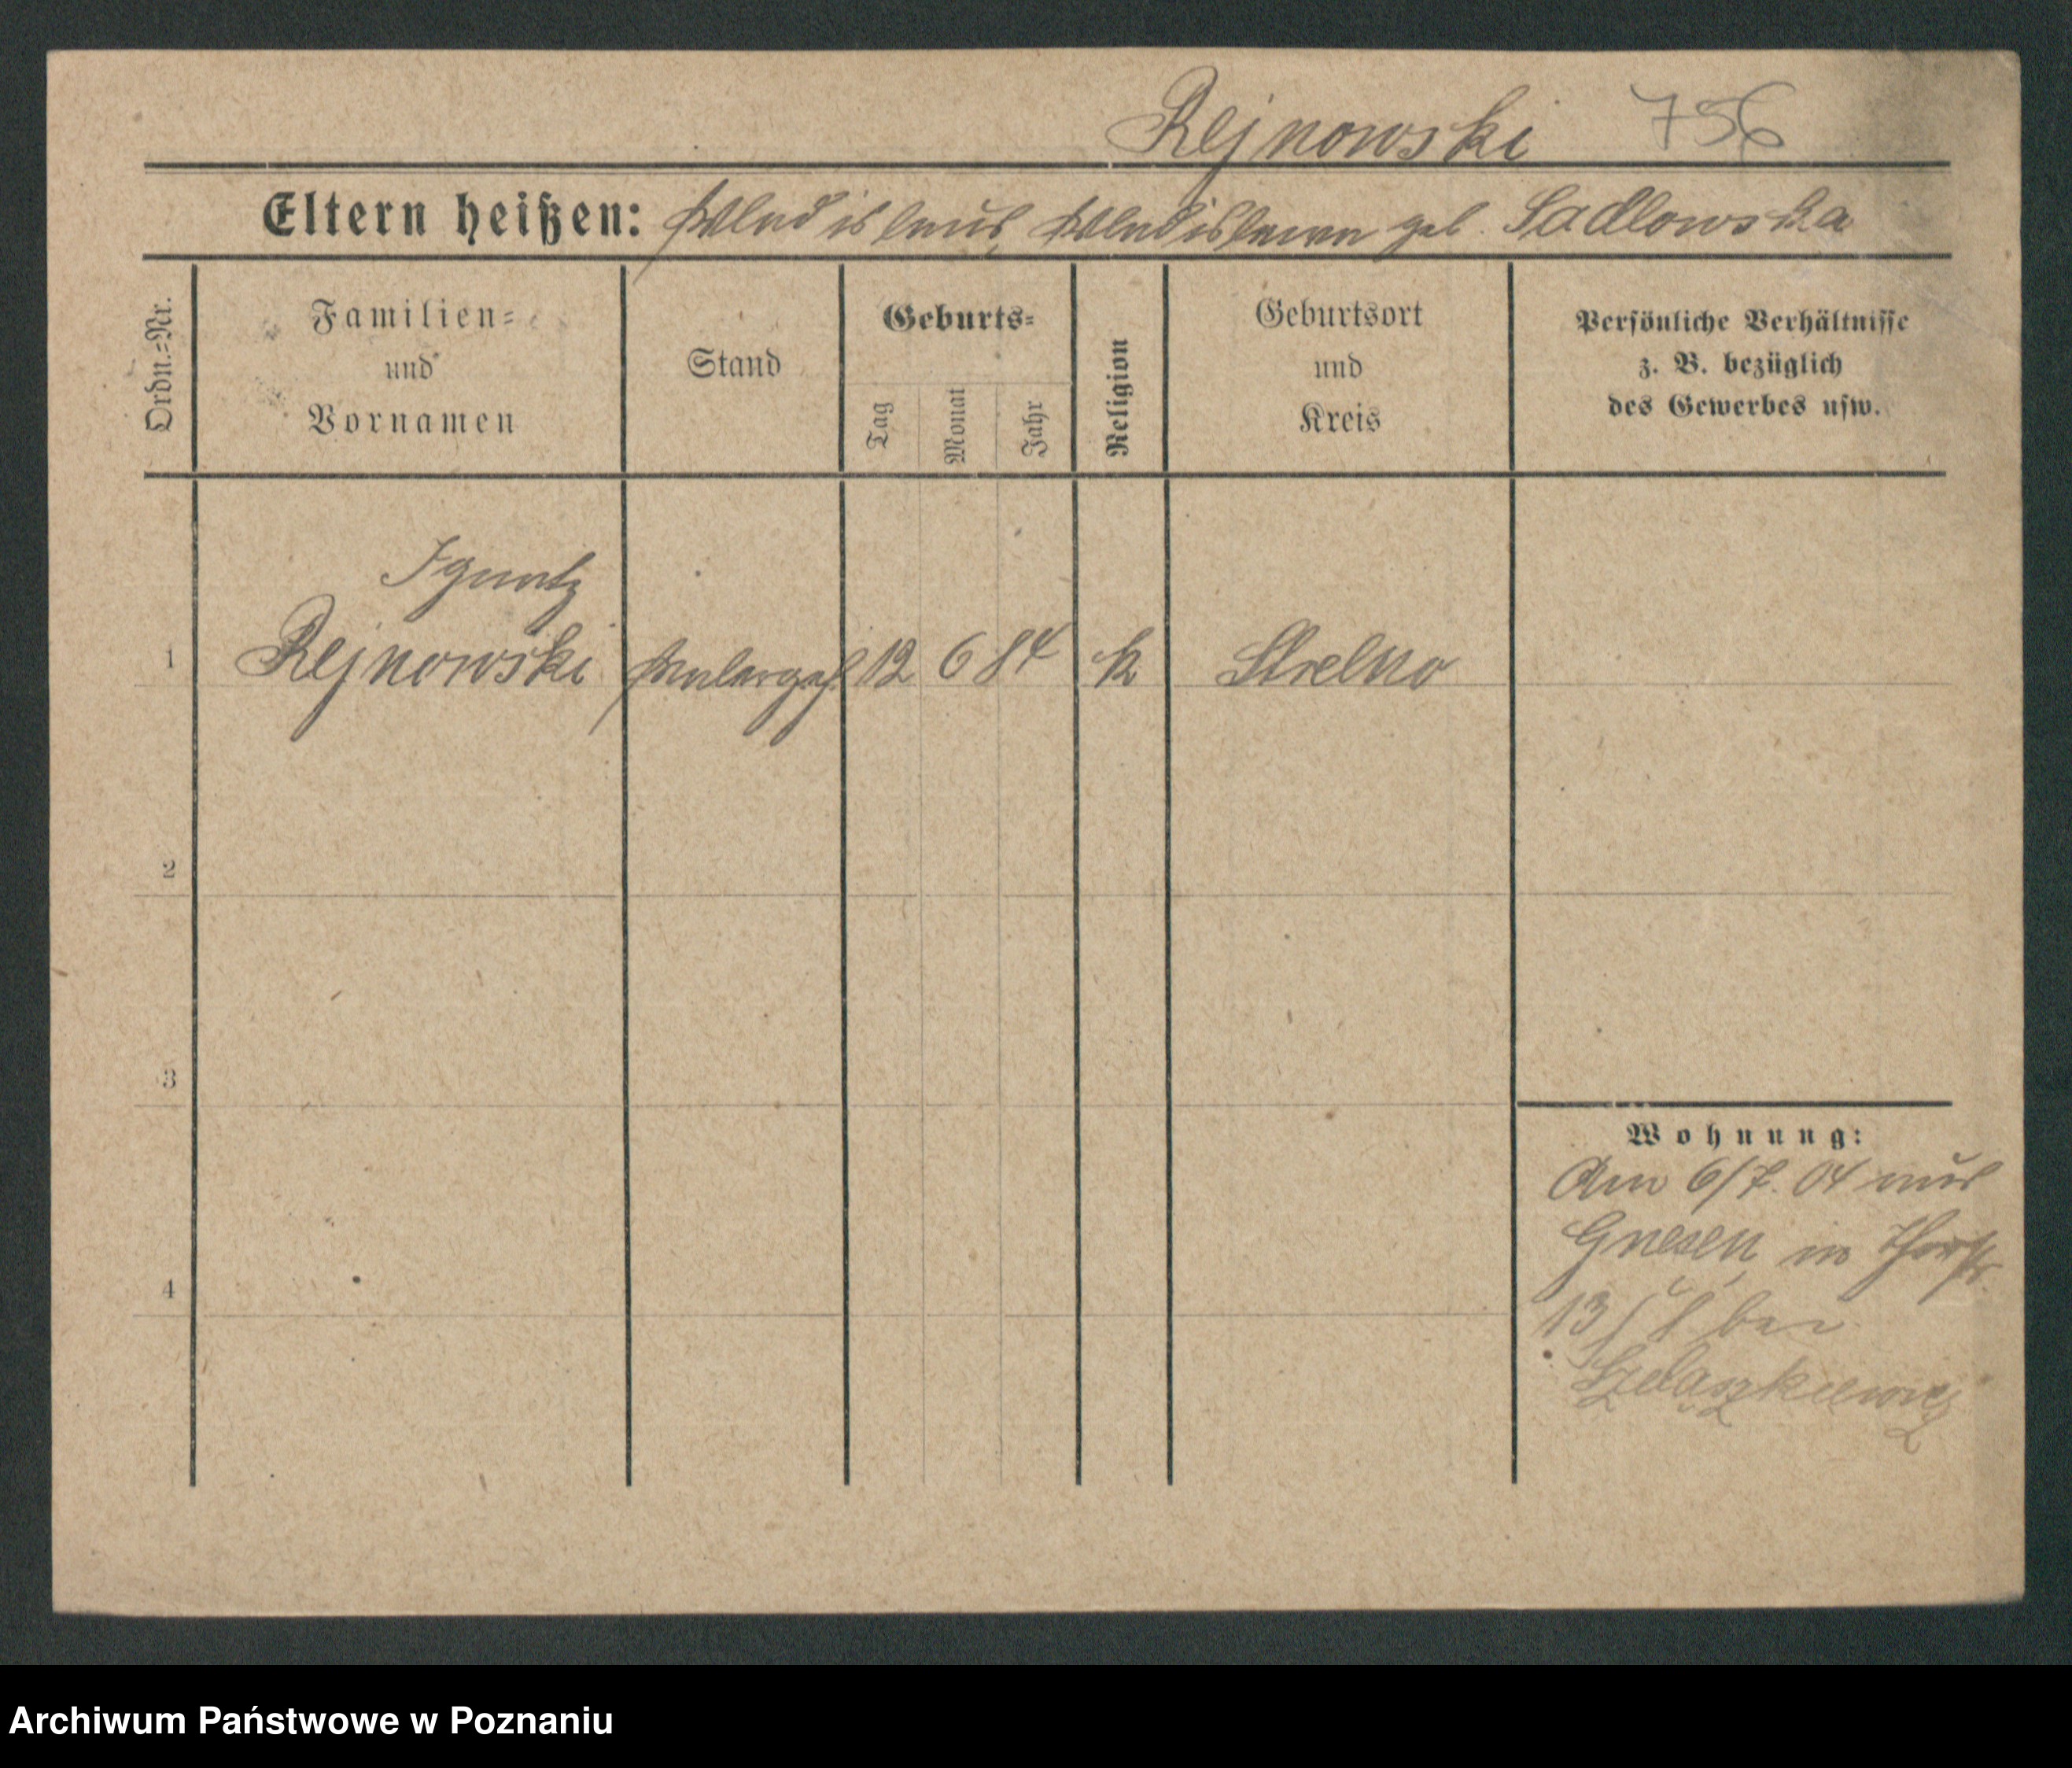 Rejnowski 756
Eltern heißen: Wladislaus, Wladislawa geb. Sadlowska
Ordn.=Nr.
Familien=
und
Vornamen
Stand
Geburts=
Tag
Monat
Jahr
Religion
Geburtsort
und
Kreis
Persönliche Verhältnisse
z. B. bezüglich
des Gewerbes usw.
Ignatz
1 Rejnowski Malergeh. 12 6 84 k Strelno
2
3
4
Wohnung:
Am 6/7. 04 aus
Gnesen in
13 bei
Archiwum Państwowe w Poznaniu